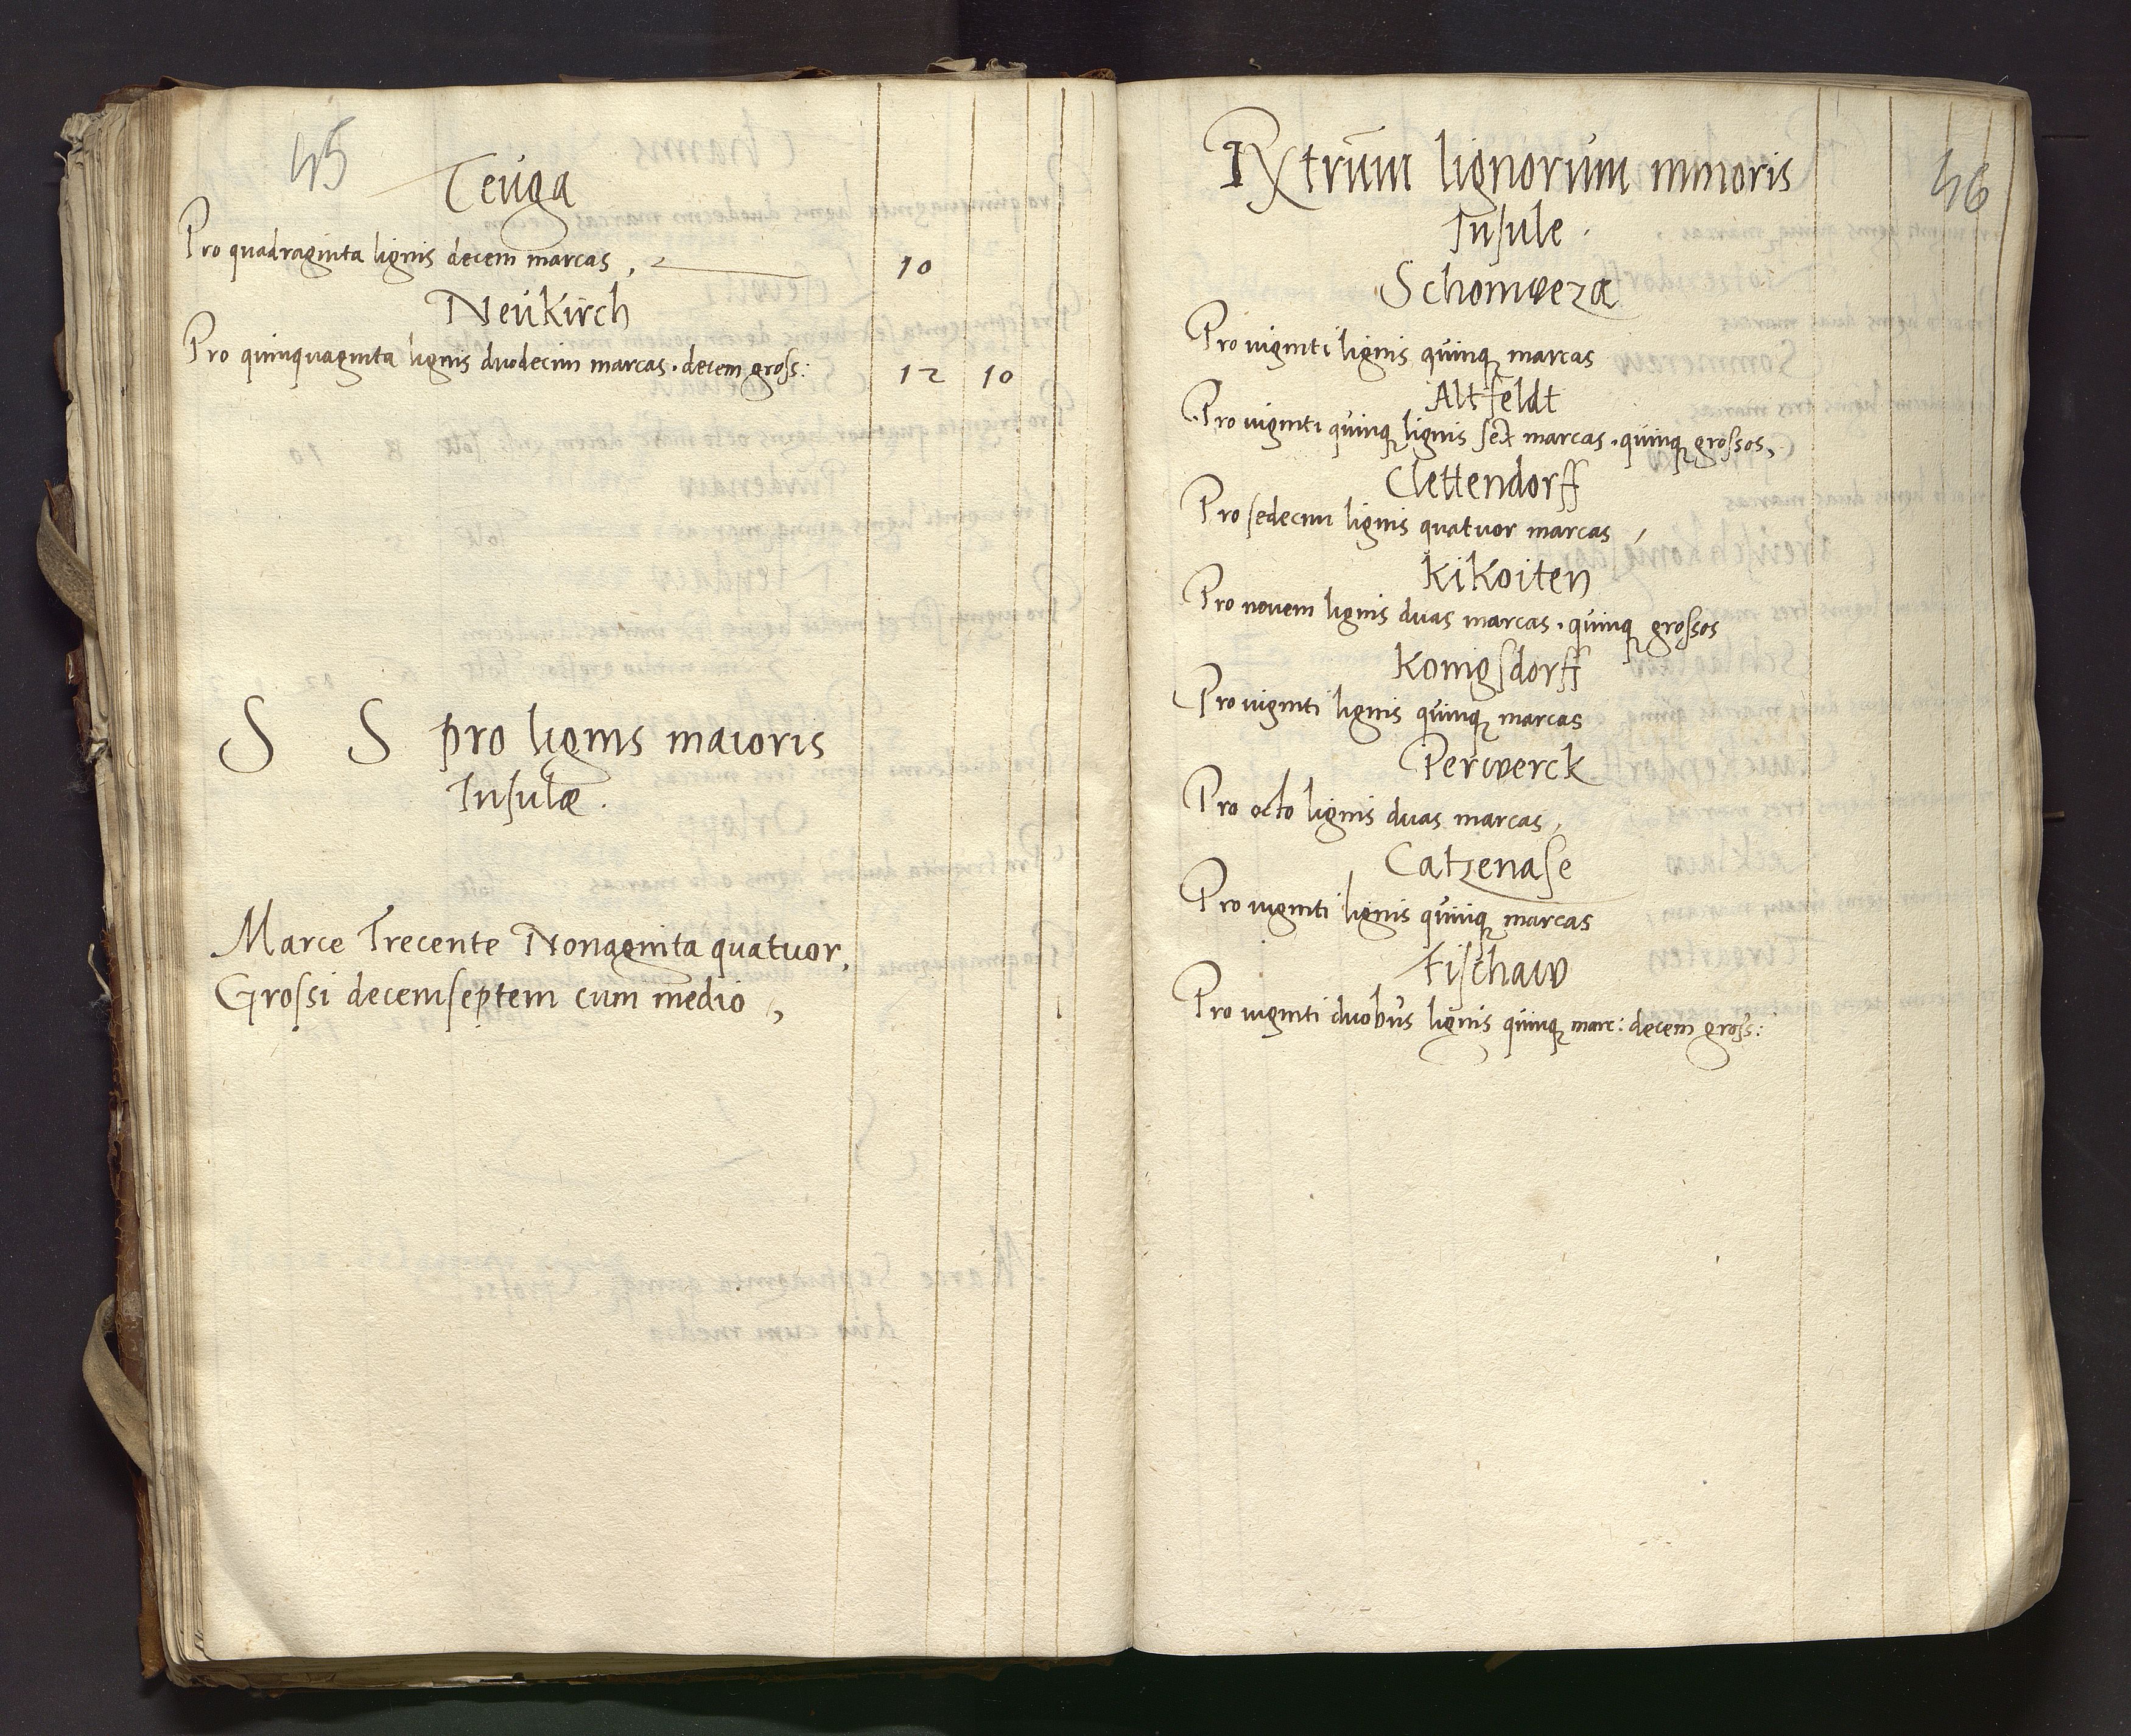 45
Teuga
Pro quadraginta lignis decem marcas, 10
Neukirch
Pro quinquaginta lignis duodecim marcas. decem gross: 12 10
S S pro lignis maioris
Insulæ.
Marce Trecente Nonaginta quatuor,
Grossi decemseptem cum medio,
46
lignorum minoris
Insule.
Schonweze
Pro viginti lignis quinq marcas
Altfeldt
Pro viginti quinq lignis sex marcas. quinq grossos,
Clettendorff
Pro sedecim lignis quatuor marcas,
Kikoiten
Pro novem lignis duas marcas. quinq grossos
Konigsdorff
Pro viginti lignis quinq marcas
Perwerck
Pro octo lignis duas marcas,
Catzenase
Pro viginti lignis quinq marcas
Fischaw
Pro viginti duobus lignis quinq marc: decem gross: